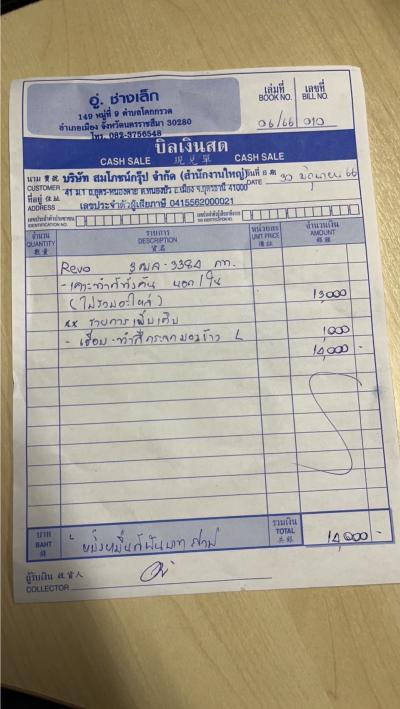 อู่. ช่างเล็ก
149 หมู่ที่ 9 ตำบลโคกกรวด
อำเภอเมือง จังหวัดนครราชสีมา 30280
โทร. 082-3756548
เล่มที่ เลขที่
BOOK NO. BILL NO.
06/66 010
บิลเงินสด
CASH SALE 現兑單 CASH SALE
นาม บริษัท สมโภชน์กรุ๊ป จำกัด (สำนักงานใหญ่) วันที่ 30 มิถุนายน 66
CUSTOMER 41 ม.1 ถ.อุดร-หนองคาย ต.หนองบัว อ.เมือง จ.อุดรธานี 41000 DATE
ที่อยู่
ADDRESS เลขประจำตัวผู้เสียภาษี 0415562000021
จำนวน รายการ หน่วยละ จำนวนเงิน
QUANTITY DESCRIPTION UNIT PRICE AMOUNT
Revo 3384 กท.
- เคาะทำสีทั้งคัน นอก/ใน
(ไม่รวมอะไหล่) 13,000
** รายการเพิ่มเติม
- เชื่อม-ทำสีกระจกมองข้าง L 1,000
14,000 -
บาท
BAHT หนึ่งหมื่นสี่พันบาทถ้วน
รวมเงิน
TOTAL 14,000 -
ผู้รับเงิน 收貨人
COLLECTOR